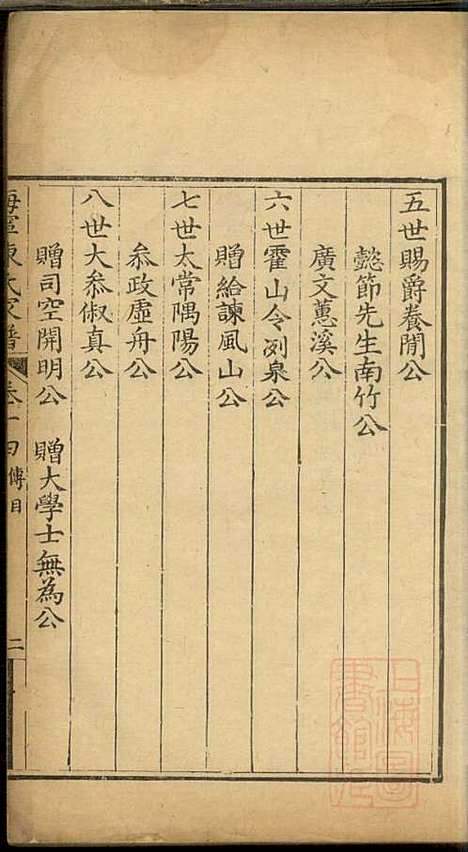 五世賜爵養閒公
懿節先生南竹公
廣文蕙溪公
六世霍山令冽泉公
贈給諫風山公
七世太常隅陽公
叅政虛舟公
八世大叅俶真公
贈司空開明公 贈大學士無為公
海寧陳氏家譜 卷十四 傳目 二